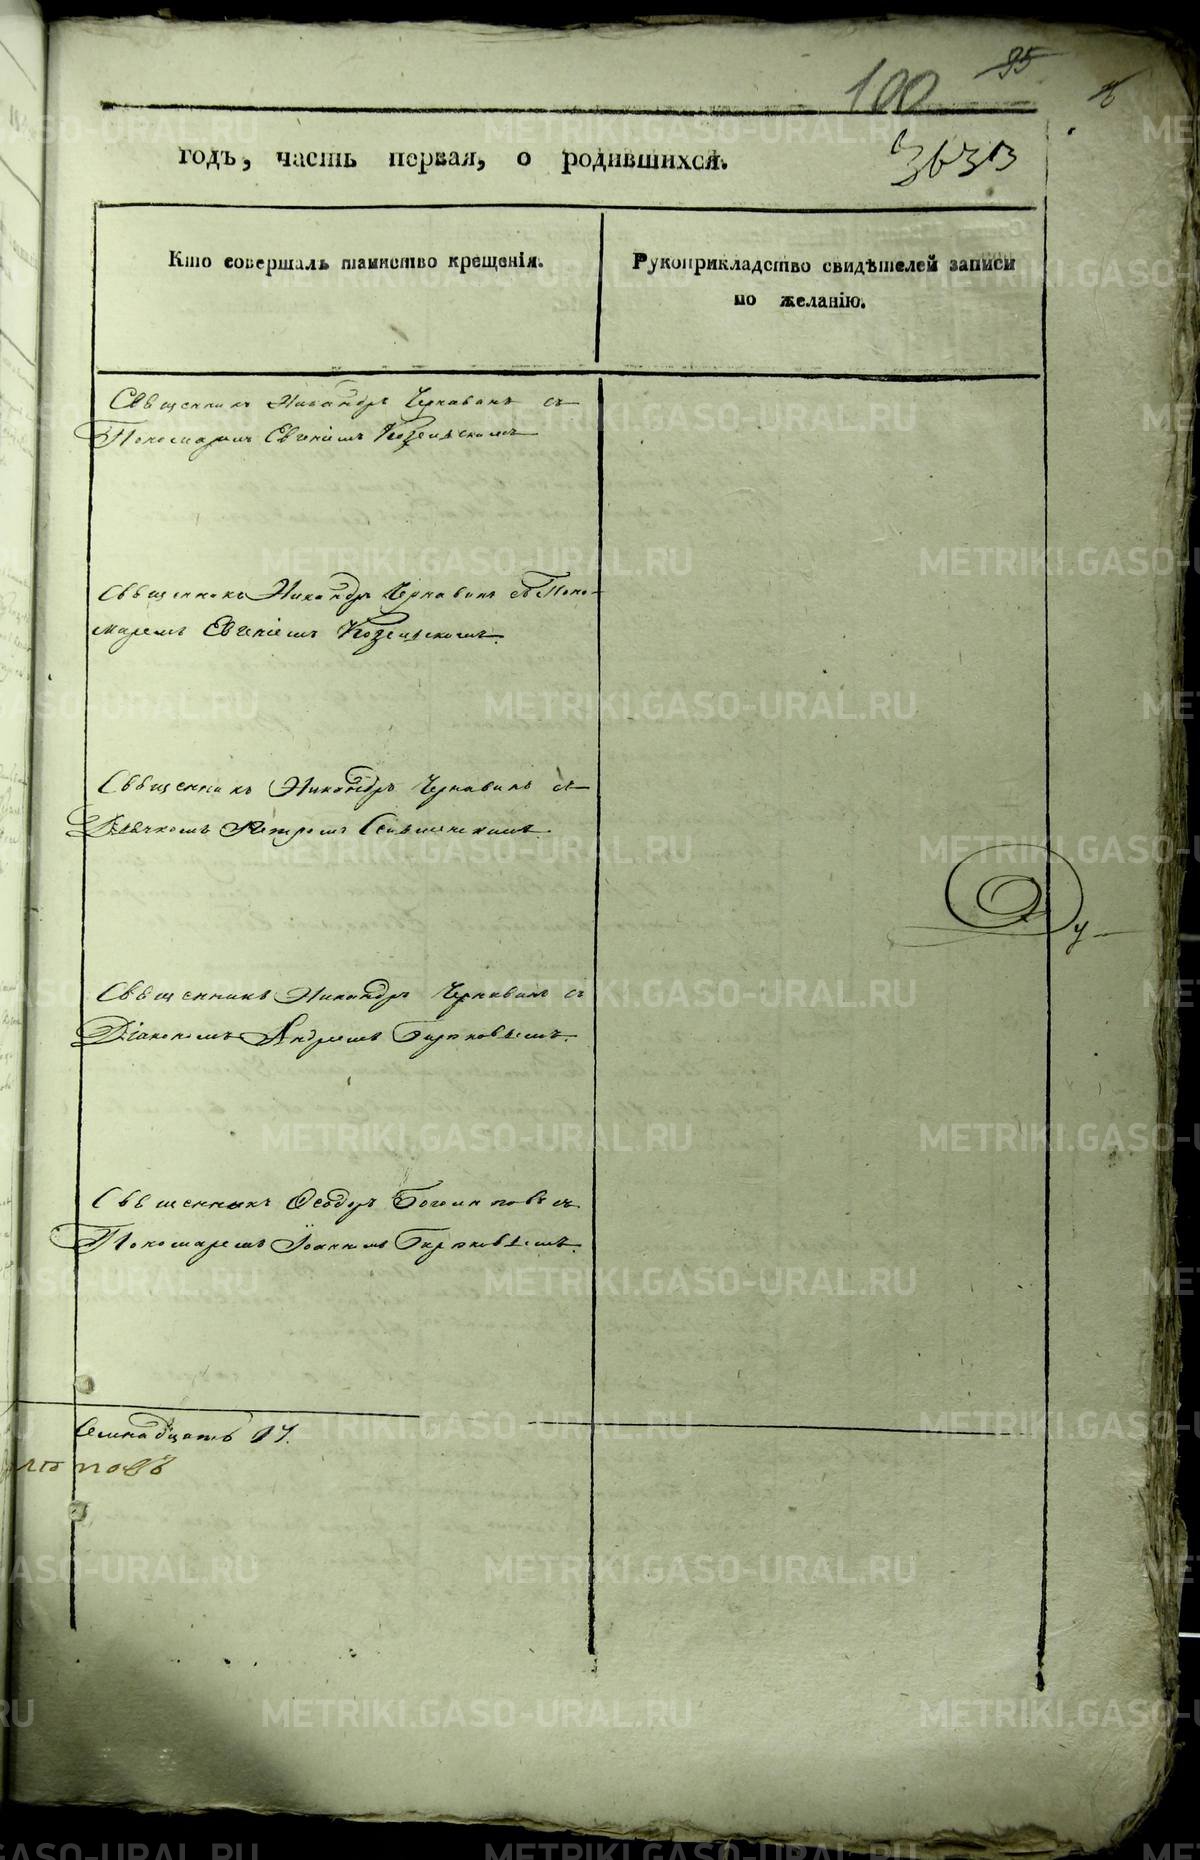 100 95
годъ, часть первая, о родившихся.
Кто совершалъ таинство крещенія.
Рукоприкладство свидѣтелей записи
по желанію.
Священникъ Никандръ Чернавинъ съ
Пономаремъ Евгеніемъ
Священникъ Никандръ Чернавинъ съ Поно-
маремъ Евгеніемъ
Священникъ Никандръ Чернавинъ съ
Дьячкомъ Петромъ
Священникъ Никандръ Чернавинъ съ
Діакономъ Андреемъ Бирюковымъ.
Священникъ Ѳеодоръ съ
Пономаремъ Іоанномъ Бирюковымъ.
Семнадцать 17.
METRIKI.GASO-URAL.RU